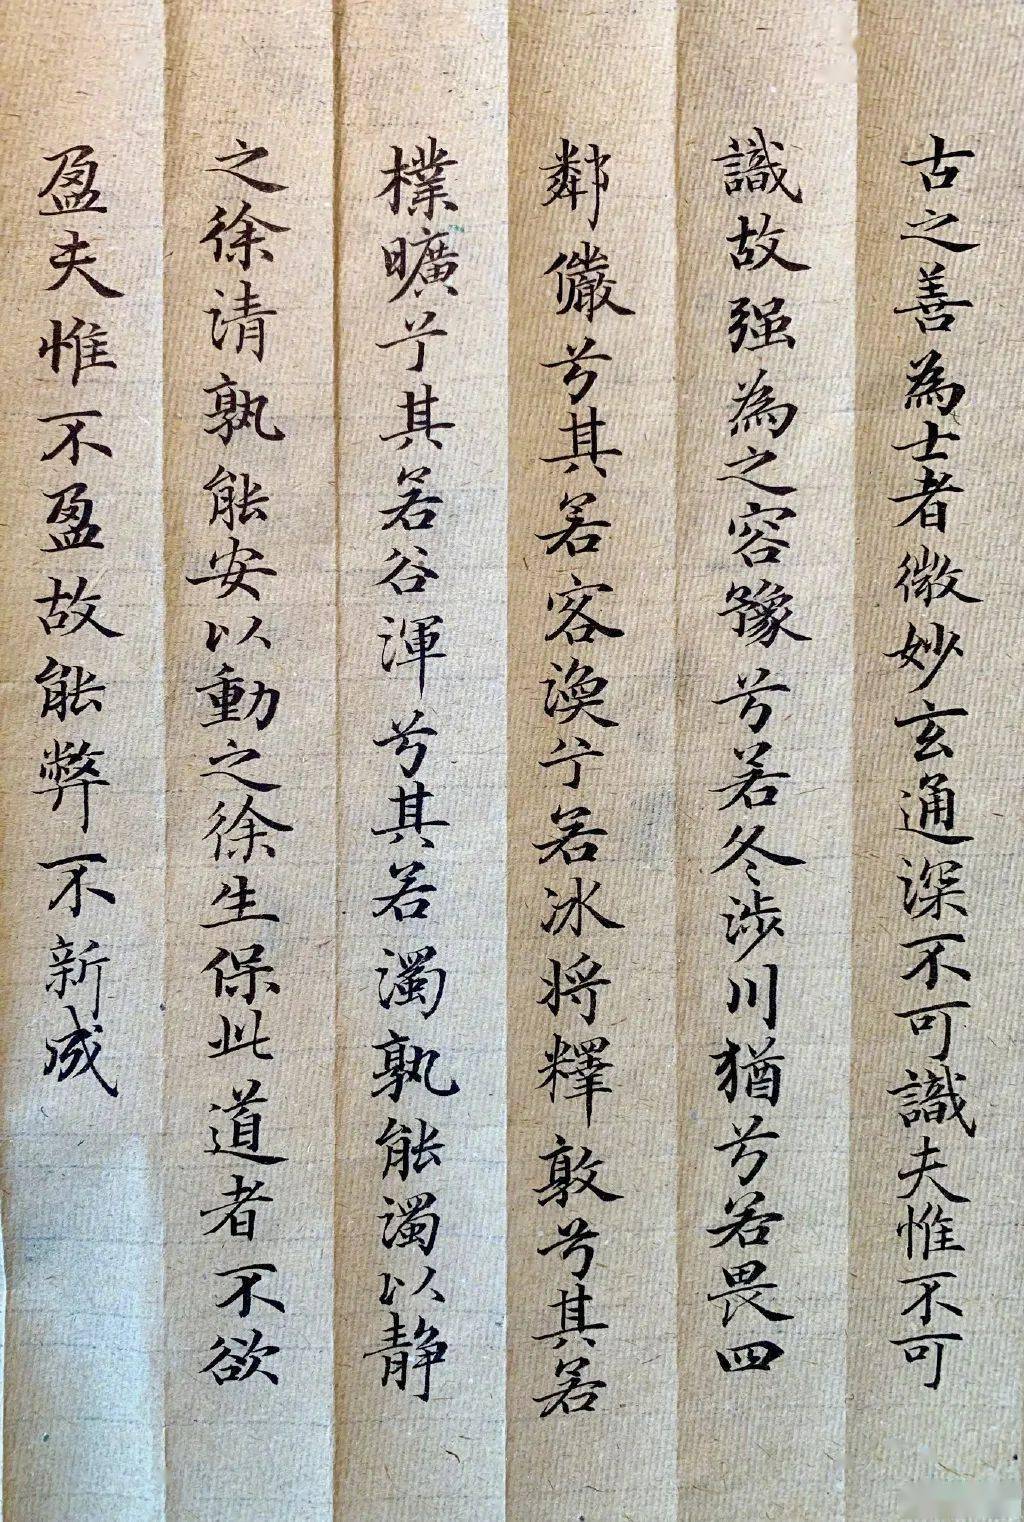 古之善為士者微妙玄通深不可識夫惟不可
識故强為之容豫兮若冬涉川猶兮若畏四
鄰儼兮其若客渙兮若冰将釋敦兮其若
樸曠兮其若谷渾兮其若濁孰能濁以静
之徐清孰能安以動之徐生保此道者不欲
盈夫惟不盈故能弊不新成